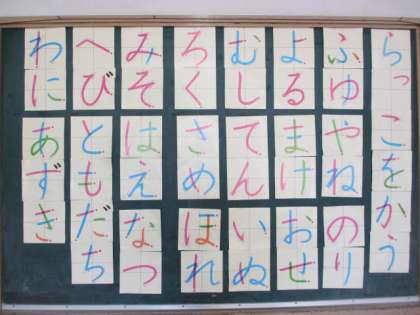 らっこをかう
ふゆ
やね
のり
よる
まけ
おせ
むし
てん
いぬ
ろく
さめ
ほれ
みそ
はえ
なつ
へび
ともだち
わに
あずき